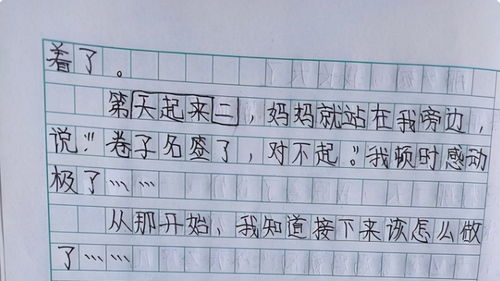 着了。
第天起来二，妈妈就站在我旁边，
说：“卷子名签了，对不起。”我顿时感动
极了……
从那开始，我知道接下来该怎么做
了……